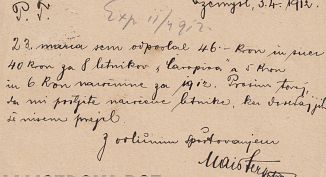 Przemysl, 3.4. 1912.
P. T.
Exp. 11/4 912.
23. marca sem odposlal 46 - kron in sicer
40 kron za 8 letnikov "Carniola" a 5 kron
in 6 kron naročnine za 1912. Prosim torej,
da mi pošljete naročene letnike, ker doslej jih
še nisem prejel.
Z odličnim spoštovanjem
Maister